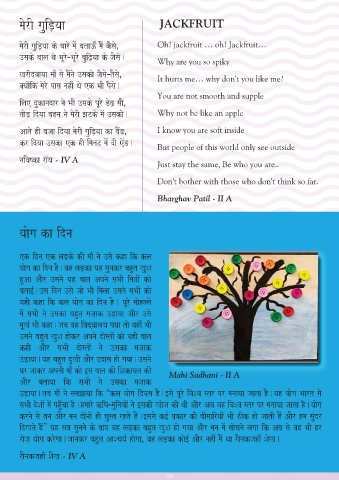 मेरी गुड़िया
मेरी गुड़िया के बारे में बताऊँ मैं कैसे,
उसके बाल थे भूरे-भूरे बुढ़िया के जैसे।
खरीदवाया माँ से मैंने उसको जैसे-तैसे,
क्योंकि मेरे पास नहीं थे एक भी पैसे।
लिए दुकानदार ने भी उसके पूरे डेढ़ सौ,
तोड़ दिया बहन ने मेरी झटके में उसको।
आते ही बजा दिया मेरी गुड़िया का बैंड,
कर दिया उसका एक ही मिनट में दी ऐंड।
नविष्का रॉय - IV A
JACKFRUIT
Oh! jackfruit … oh! Jackfruit…
Why are you so spiky
It hurts me… why don't you like me?
You are not smooth and supple
Why not be like an apple
I know you are soft inside
But people of this world only see outside
Just stay the same, Be who you are..
Don't bother with those who don't think so far.
Bharghav Patil - II A
योग का दिन
एक दिन एक लड़के की माँ ने उसे कहा कि कल
योग का दिन है। वह लड़का यह सुनकर बहुत खुश
हुआ और उसने यह बात अपने सभी मित्रों को
बताई। उस दिन उसे जो भी मिला उसने सभी को
यही कहा कि कल योग का दिन है। पूरे मोहल्ले
में सभी ने उसका बहुत मज़ाक उड़ाया और उसे
मूर्ख भी कहा। जब वह विद्यालय गया तो वहाँ भी
उसने बहुत खुश होकर अपने दोस्तों को यही बात
कही और सभी दोस्तों ने उसका मजाक
उड़ाया। वह बहुत दुःखी और उदास हो गया। उसने
घर जाकर अपनी माँ को इस बात की शिकायत की
और बताया कि सभी ने उसका मजाक
उड़ाया। तब माँ ने समझाया कि "कल योग दिवस है। इसे पूरे विश्व स्तर पर मनाया जाता है। यह योग भारत से
सभी देशों में पहुँचा है। हमारे ऋषि-मुनियों ने इसकी खोज की थी और अब यह विश्व स्तर पर मनाया जाता है। योग
करने से तन और मन दोनों ही चुस्त रहते हैं। इससे कई प्रकार की बीमारियाँ भी ठीक हो जाती हैं और हम सुंदर
दिखते हैं" यह सब सुनने के बाद वह लड़का बहुत खुश हो गया और मन में सोचने लगा कि अब से वह भी हर
रोज़ योग करेगा। जानकर बहुत आश्चर्य होगा, वह लड़का कोई और नहीं मैं था रौनकजहाँ शेख।
रौनकजहाँ शेख - IV A
Mahi Sadhani - II A